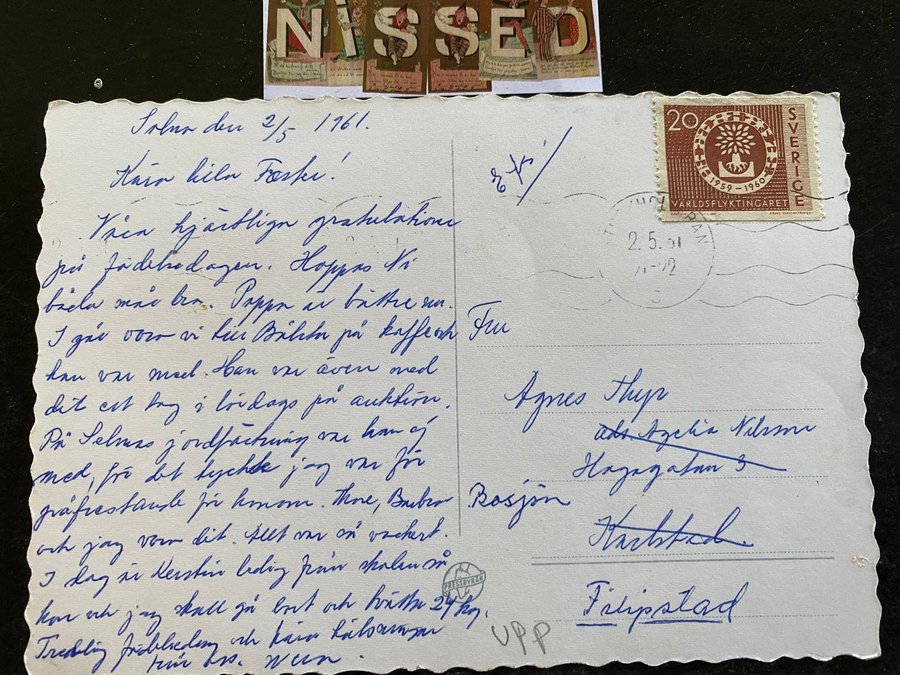 NISSED
Solna den 2/5 1961.
Kära lilla Faster!
Våra hjärtliga gratulationer
på födelsedagen. Hoppas Ni
båda må bra. Pappa är bättre nu.
I går voro vi till Bålsta på kaffe och
han var med. Han var även med
dit ett tag i lördags på auktion.
På Selmas jordfästning var han ej
med, för det tyckte jag var för
för honom. Thore, Barbro
och jag voro dit. Allt var så vackert.
I dag är Kerstin ledig från skolan så
hon och jag skall gå bort och tvätta 24 kg.
Trevlig födelsedag och kära hälsningar
från oss.
20
SVERIGE
1959-1960
VÄRLDSFLYKTINGARET
2.5.61
Fru
Agnes Thyr
adr. Agelia Nilsson
Hagagatan 3
Rosjön
Karlstad
Filipstad
PRESSBYRÅN
UPP